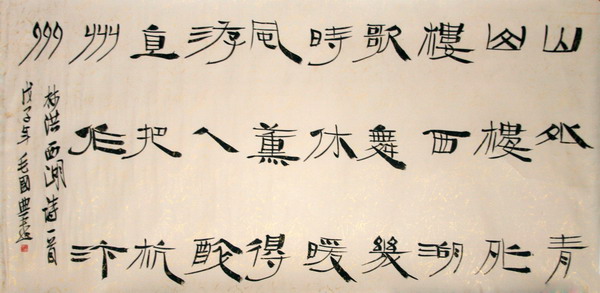 山外青
山樓外
樓西湖
歌舞幾
時休暖
風薰得
游人醉
直把杭
州作汴
州
林洪西湖诗一首
戊子年毛國典書